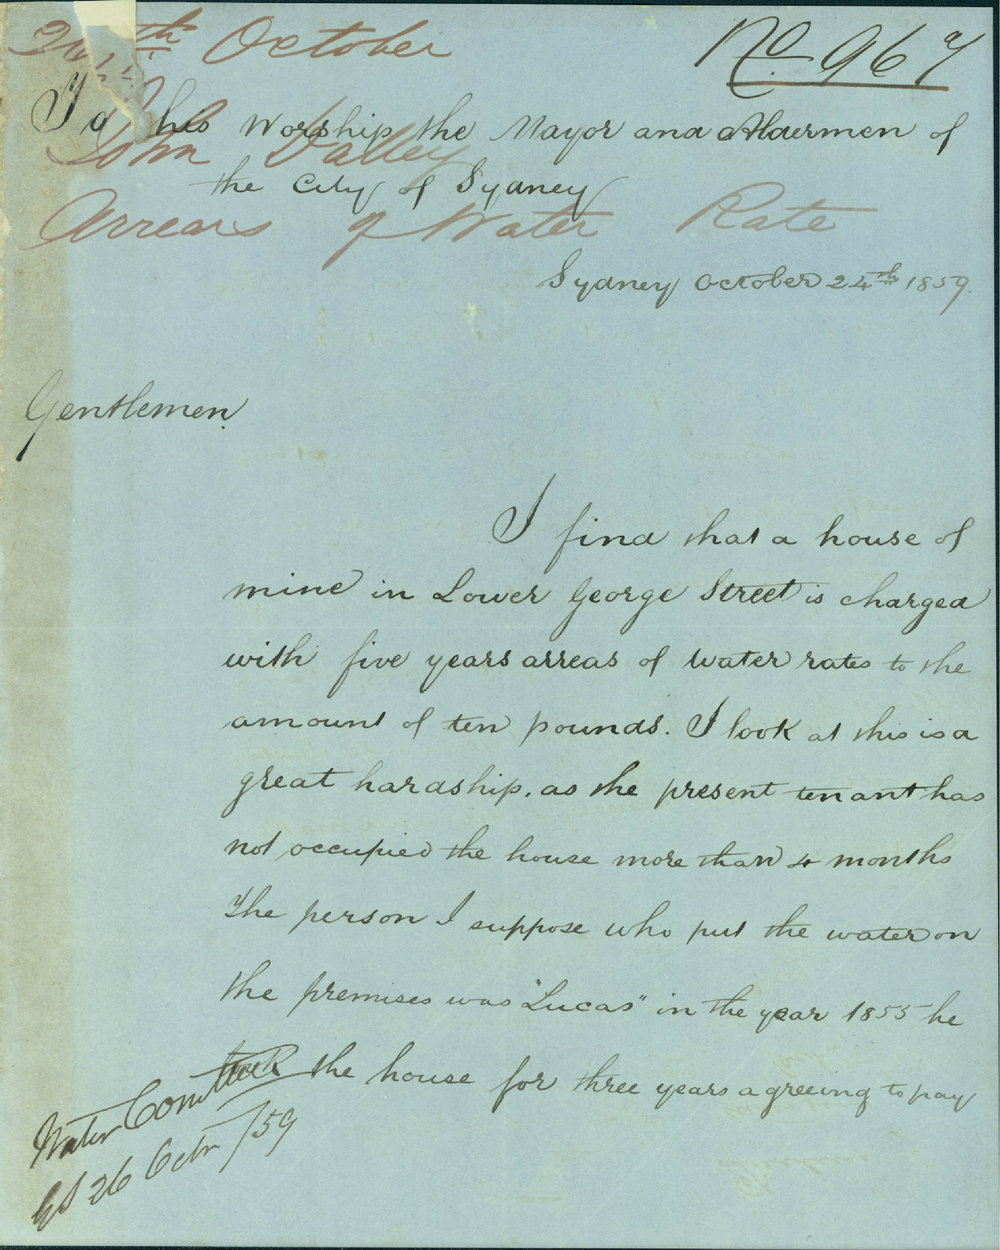 24th October
No 967
To his Worship the Mayor and Aldermen of
John Valley
the City of Sydney
Arrears of Water Rate
Sydney October 24th 1859.
Gentlemen
I find that a house of
mine in Lower George Street is charged
with five years arreas of water rates to the
amount of ten pounds. I look at this is a
great hardship. as the present tenant has
not occupied the house more than 4 months
The person I suppose who put the water on
the premises was "Lucas" in the year 1855 he
took the house for three years agreeing to pay
Water Comttee
26 Octr /59